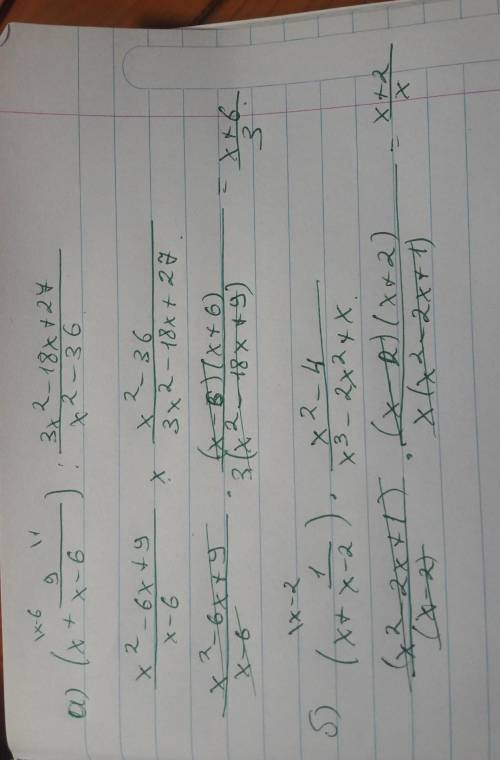 а) (x + 9/(x-6)) : (3x² - 18x + 27)/(x² - 36) \x-6 \1
(x² - 6x + 9)/(x - 6) × (x² - 36)/(3x² - 18x + 27)
(x² - 6x + 9)/(x - 6) · ((x - 6)(x + 6))/(3(x² - 18x + 9)) = (x + 6)/3
б) (x + 1/(x - 2)) · (x² - 4)/(x³ - 2x² + x) \x-2
((x² - 2x + 1))/((x - 2)) · ((x - 2)(x + 2))/(x(x² - 2x + 1)) = (x + 2)/x